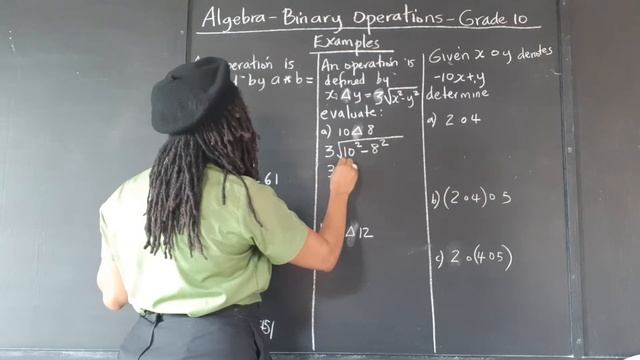 Algebra - Binary Operations - Grade 10
Examples
operation is
by a * b =
61
An operation is
defined by
x Δ y = 3√x²-y²
evaluate:
a) 10 Δ 8
3√10² - 8²
3
Δ 12
Given x o y denotes
-10x+y
determine
a) 2 o 4
b) (2 o 4) o 5
c) 2 o (4 o 5)